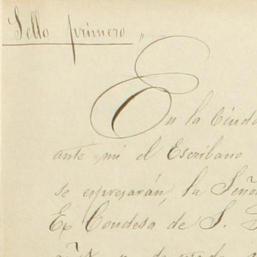 Sello primero„
En la Ciuda
ante mi el Escribano
se espresarán, la Seño
Ex Condesa de S.